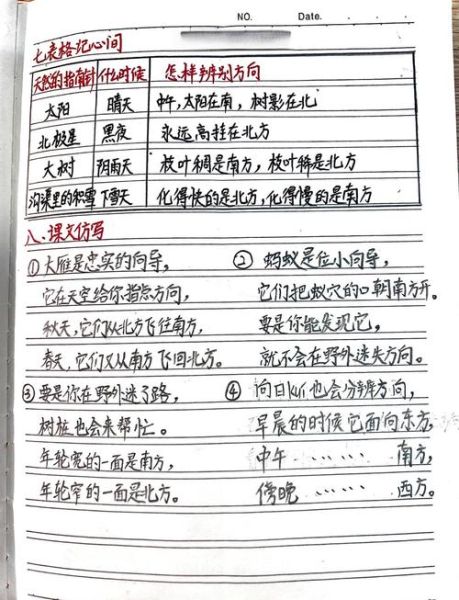 NO. Date.
七表格记心间
天然的指南针 什么时候 怎样辨别方向
太阳 晴天 中午,太阳在南,树影在北
北极星 黑夜 永远高挂在北方
大树 阴雨天 枝叶稠是南方,枝叶稀是北方
沟渠里的积雪 下雪天 化得快的是北方,化得慢的是南方
八、课文仿写
①大雁是忠实的向导, ② 蚂蚁是位小向导,
它在天空给你指点方向, 它们把蚁穴的口朝南方开。
秋天,它们从北方飞往南方, 要是你能发现它,
春天,它们又从南方飞回北方。 就不会在野外迷失方向。
③要是你在野外迷了路, ④ 向日kui也会分辨方向,
树桩也会来帮忙。 早晨的时候它面向东方,
年轮宽的一面是南方, 中午 …… 南方,
年轮窄的一面是北方。 傍晚 …… 西方。